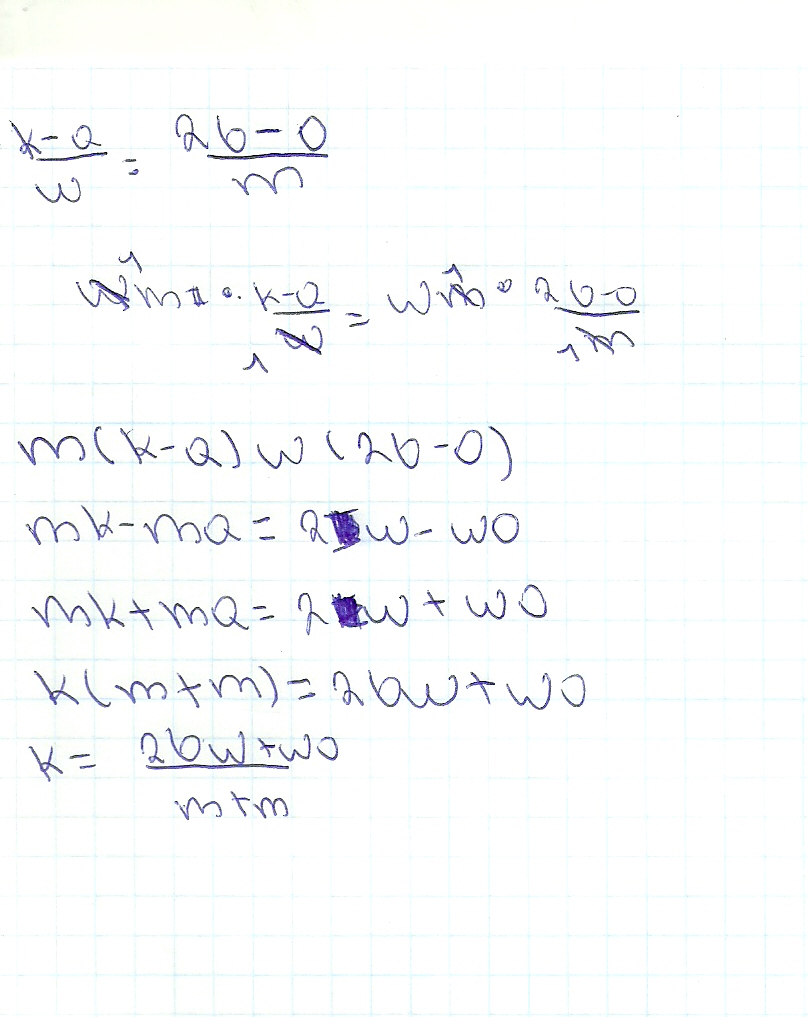 k-a/w = 2b-0/m
wm · k-a/w = wm · 2b-0/m
m(k-a) w (2b-0)
mk-ma = 2bw-w0
mk+ma = 2 w + w0
k(m+m) = 2bw+w0
k = 2bw+w0/m+m